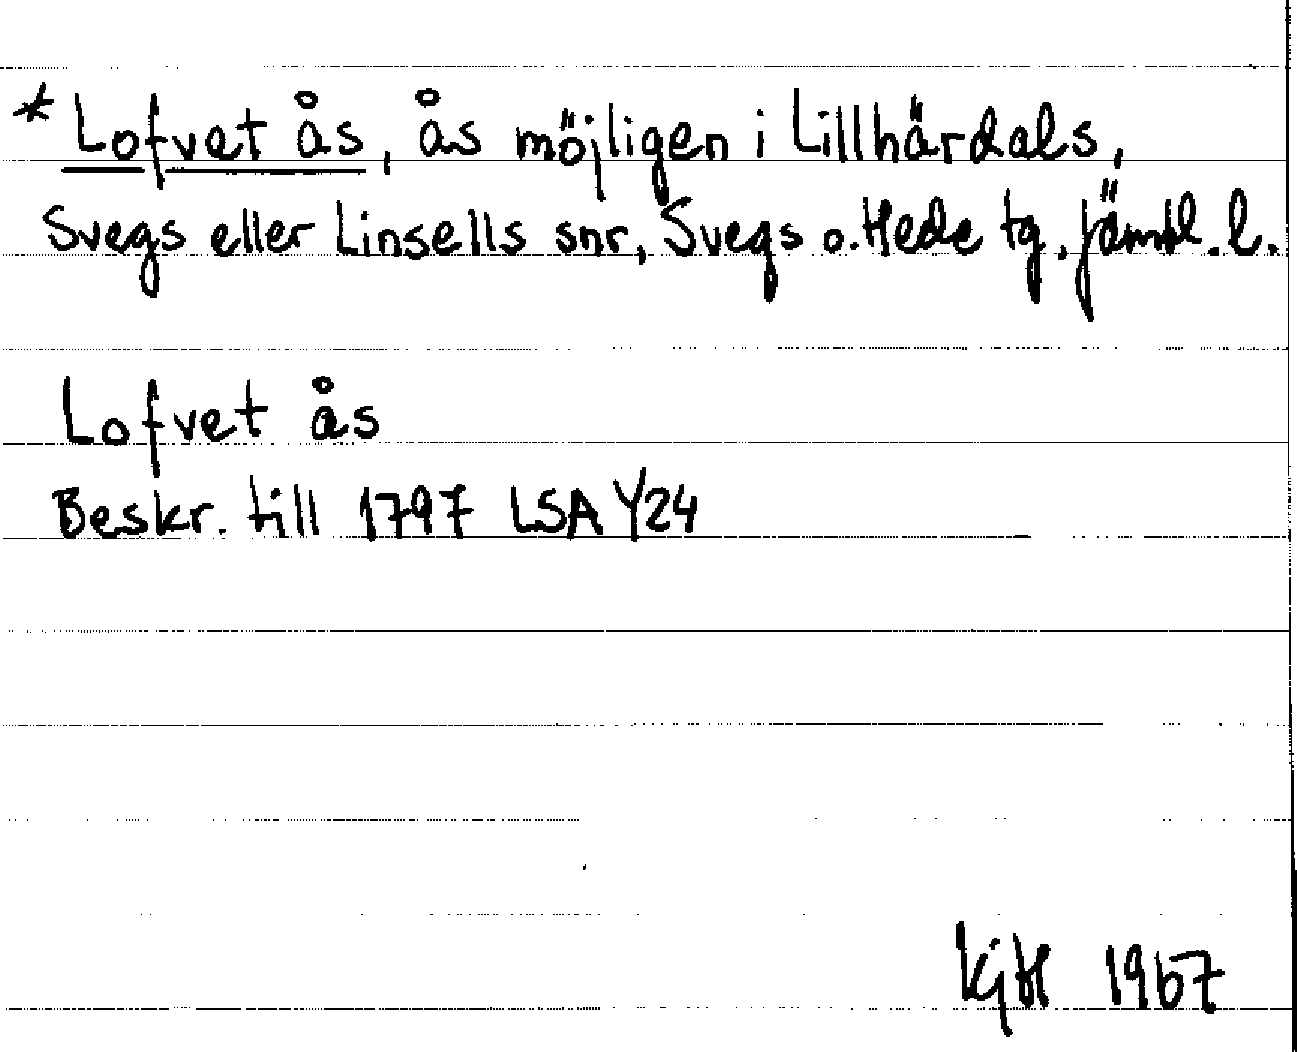 * Lofvet ås, ås möjligen i Lillhärdals,
Svegs eller Linsells snr, Svegs o. Hede tg, Jämtl. l.
Lofvet ås
Beskr. till 1797 LSA Y24
KjH 1967